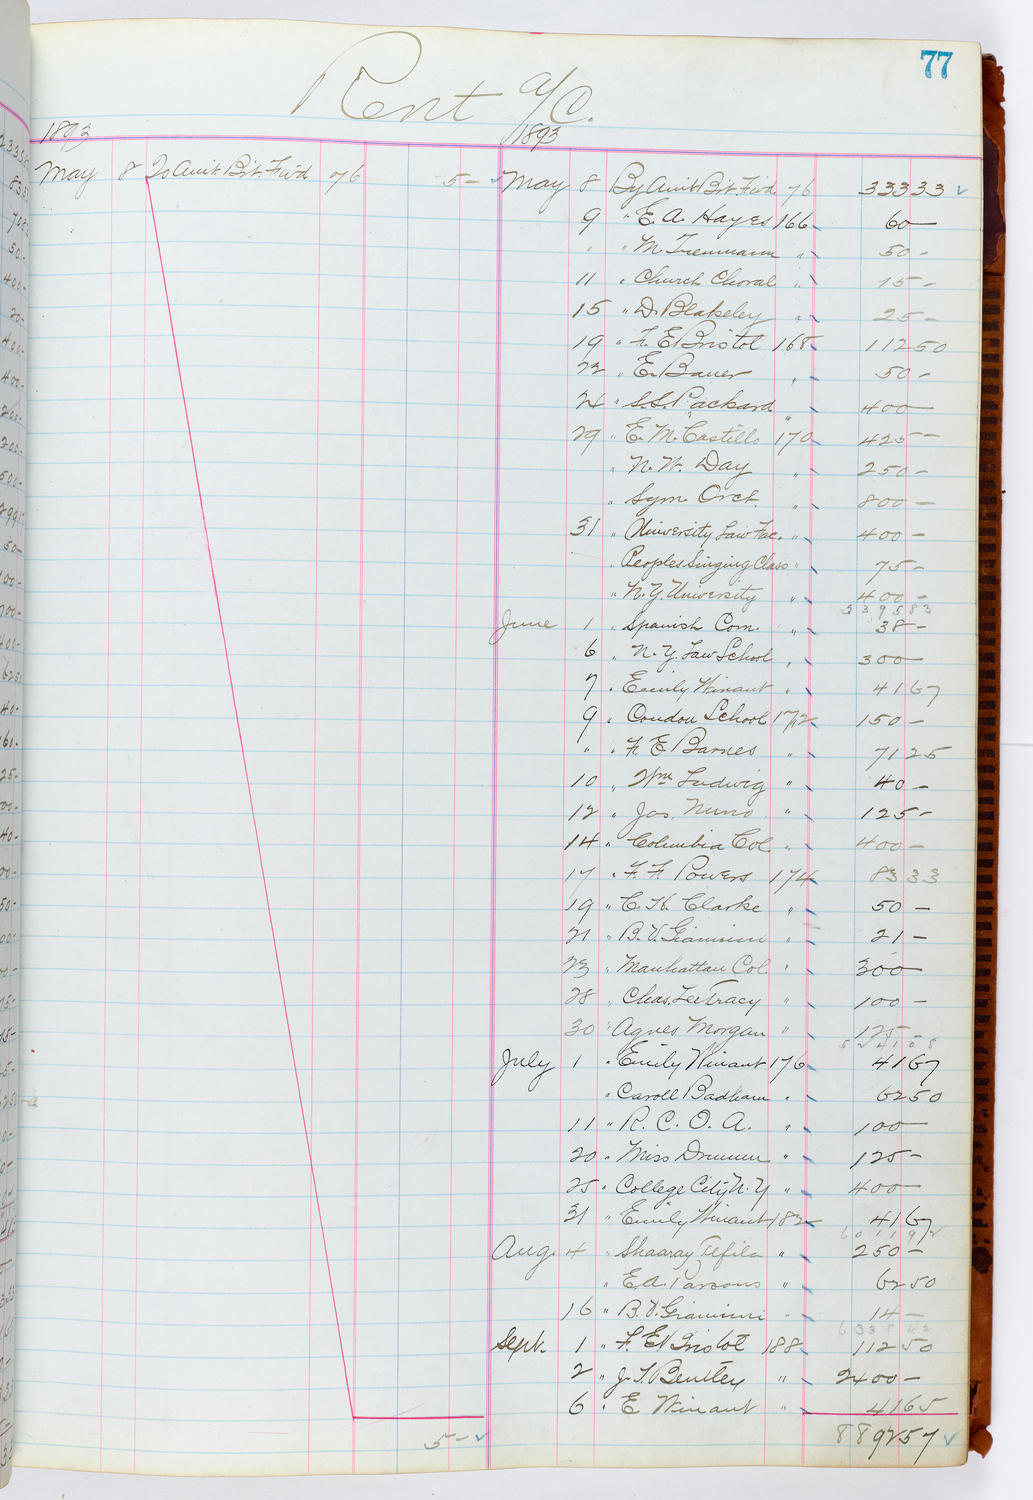 77
Rent a/c.
1893
1893
May 8 To Amt Brt Fwd 76 5 -
May 8 By Amt Brt Fwd 76 333 33
9 " E. A. Hayes 166 60 -
" " M. Tienmann " 50 -
11 " Church Choral " 15 -
15 " D. Blakeley " 25 -
19 " F. E. Bristol 168 112 50
22 " E. Bauer " 50 -
24 " S. S. Packard " 400 -
29 " E. M. Castillo 170 425 -
" N. W. Day " 250 -
" Sym Orch. " 800 -
31 " University Law Fac. " 400 -
" Peoples Singing Class " 75 -
" N. Y. University " 400 -
3 3 9 5 8 3
June 1 " Spanish Com. " 38 -
6 " N. Y. Law School " 300 -
7 " Emily Winant " 41 67
9 " Condon School 172 150 -
" " F. E. Barnes " 71 25
10 " Wm Ludwig " 40 -
12 " Jas. Nuno " 125 -
14 " Columbia Col. " 400 -
17 " F. F. Powers 174 83 33
19 " C. H. Clarke " 50 -
21 " B. V. Giannini " 21 -
23 " Manhattan Col. " 300 -
28 " Chas. Lee Tracy " 100 -
30 " Agnes Morgan " 125 -
5 2 4 1 0 8
July 1 " Emily Winant 176 41 67
" Caroll Badham " 62 50
11 " R. C. O. A. " 100 -
20 " Miss Drumm " 125 -
25 " College City N. Y " 400 -
31 " Emily Winant 182 41 67
6 0 1 1 9 2
Aug. 4 " Shaaray Tefila " 250 -
" E. A. Parsons " 62 50
16 " B. V. Giannini " 14 -
6 3 3 8 4 2
Sept. 1 " F. E. Bristol 188 112 50
2 " J. T. Bentley " 2400 -
6 " E Winant " 41 65
5 - 8892 57